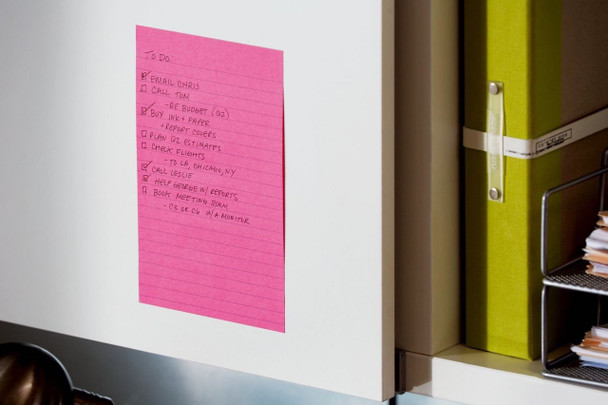 TO DO
☑ EMAIL CHRIS
☐ CALL TOM
-RE BUDGET (Q2)
☑ BUY INK + PAPER
+ REPORT COVERS
☐ PLAN Q2 ESTIMATES
☐ CHECK FLIGHTS
-TO LA, CHICAGO, NY
☑ CALL LESLIE
☑ HELP GEORGE W/ REPORTS
☐ BOOK MEETING ROOM
-C2 OR C6 W/A MONITOR